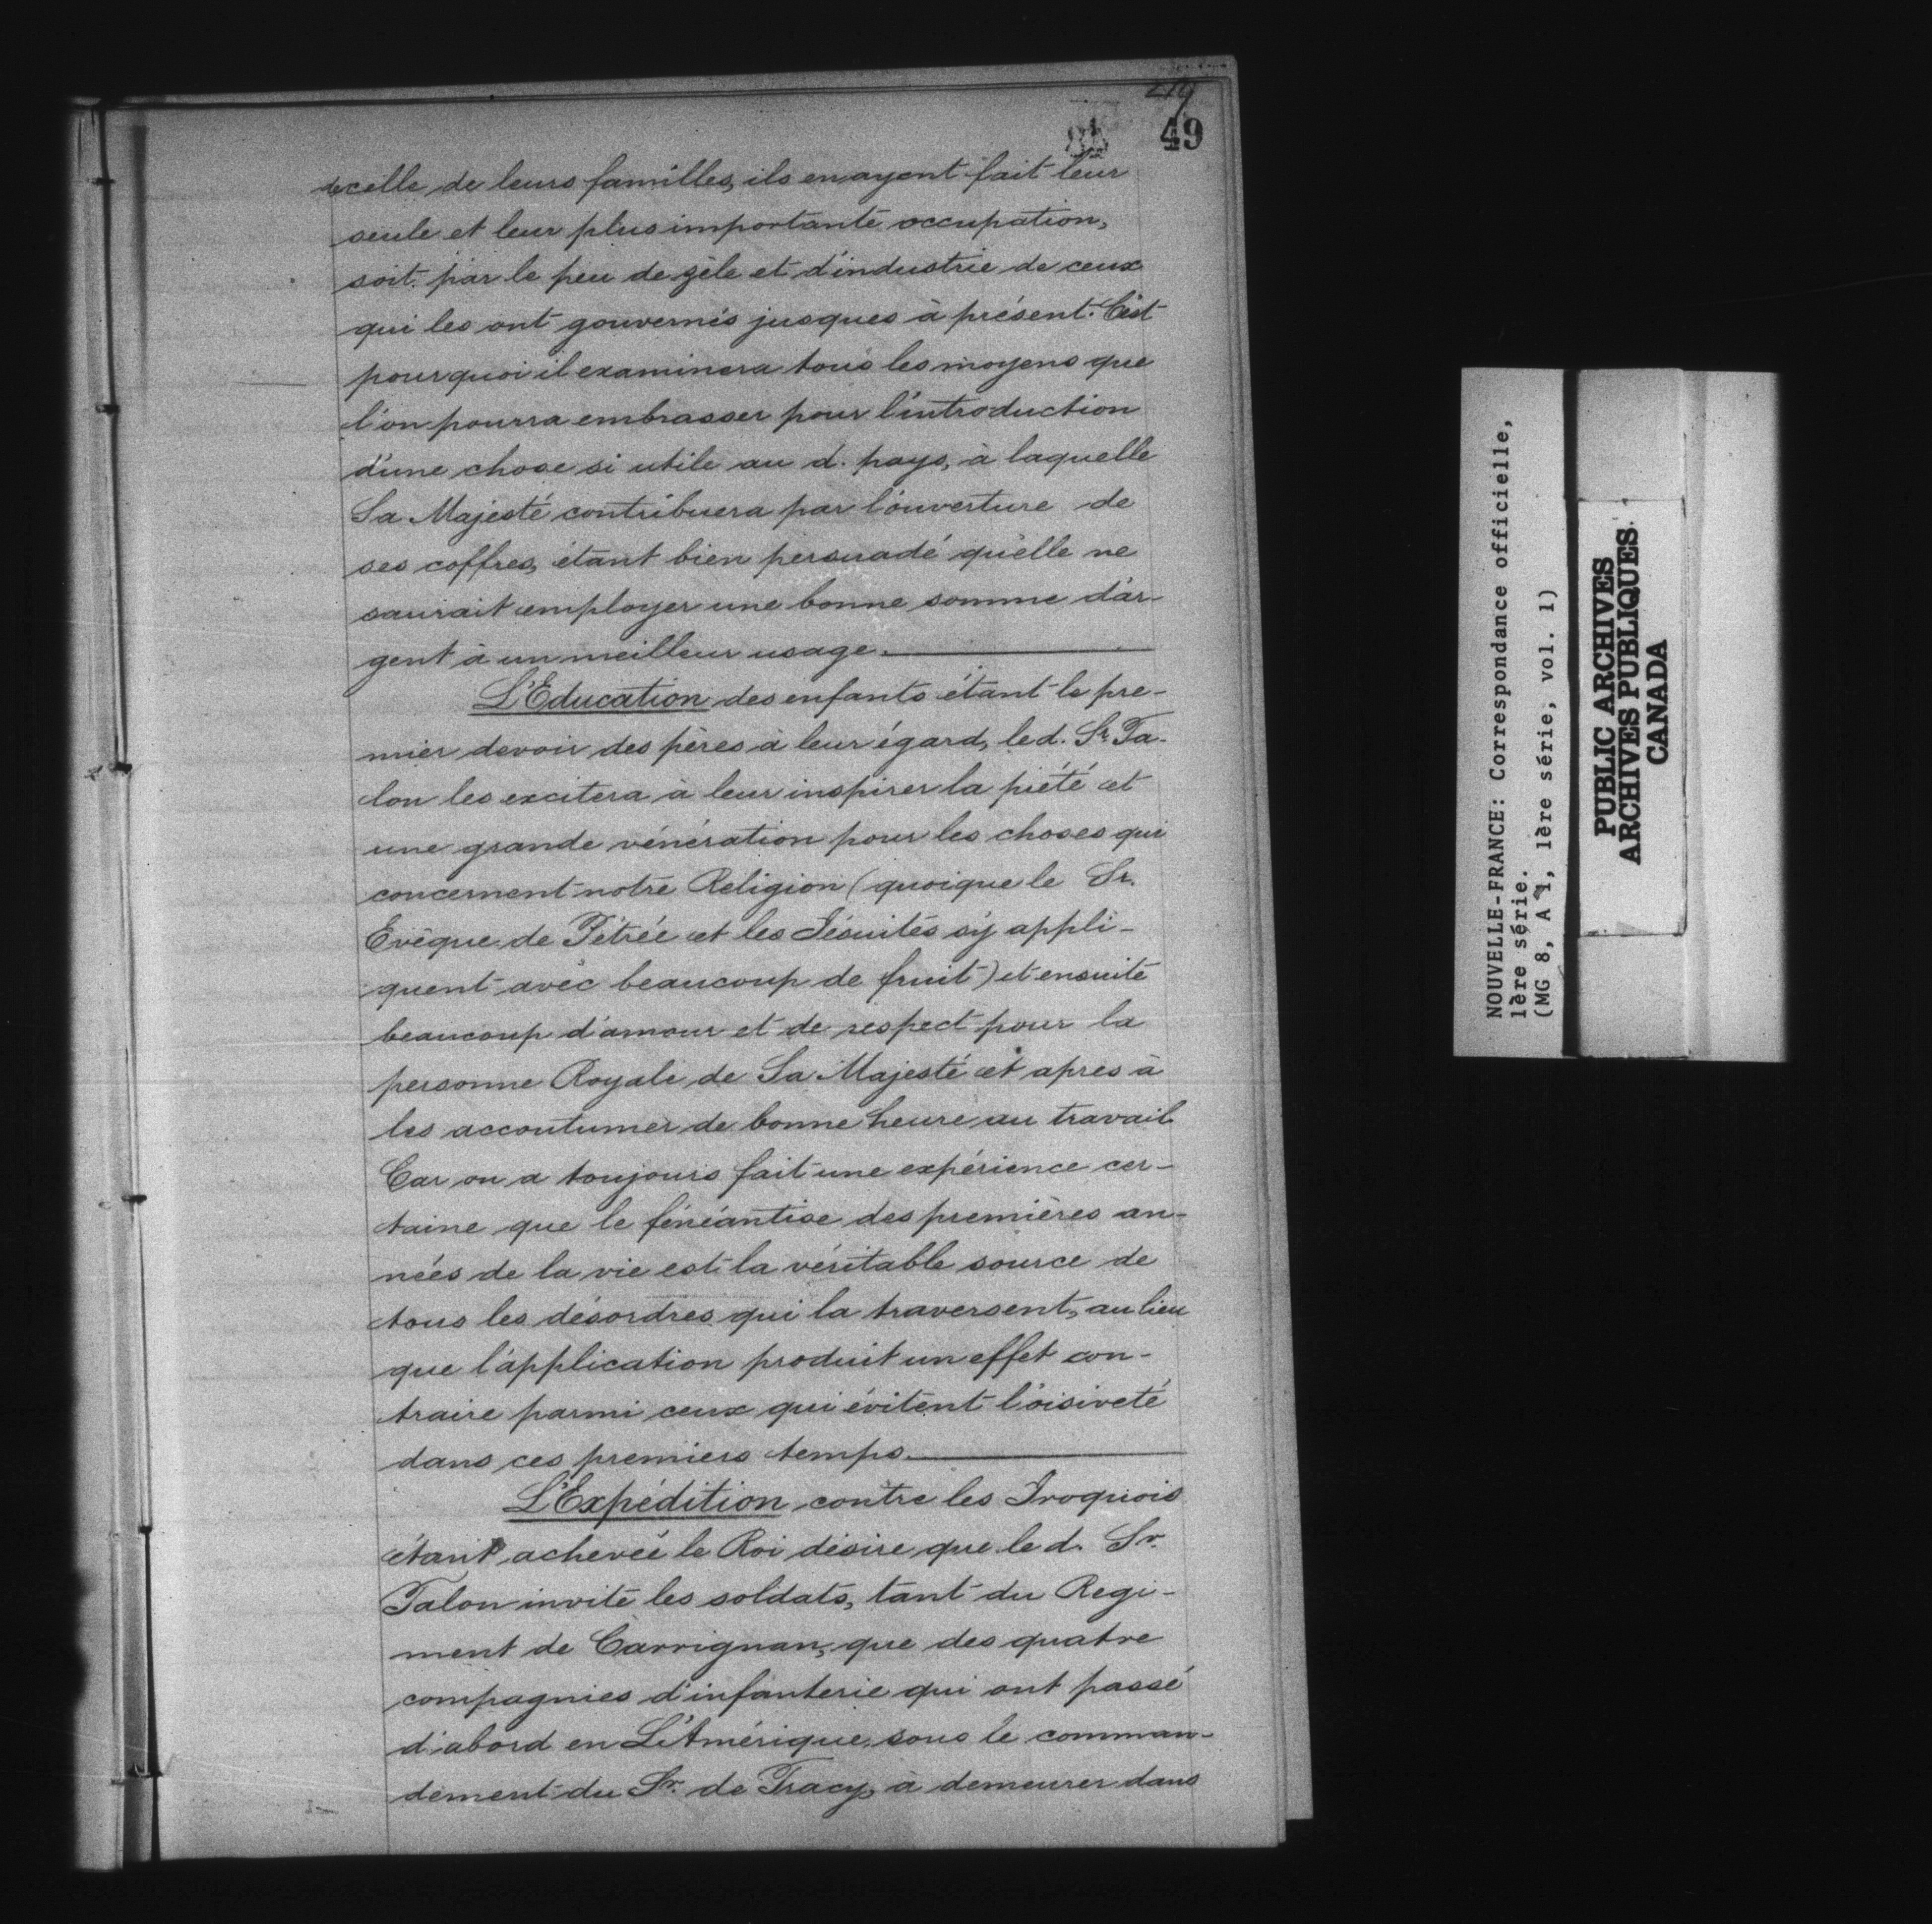 49
de celle de leurs familles, ils en ayent fait leur
seule et leur plus importante occupation,
soit par le peu de zèle et d'industrie de ceux
qui les ont gouvernés jusques à présent. C'est
pourquoi il examinera tous les moyens que
l'on pourra embrasser pour l'introduction
d'une chose si utile au d. pays, à laquelle
Sa Majesté contribuera par l'ouverture de
ses coffres, étant bien persuadé qu'elle ne
saurait employer une bonne somme d'ar-
gent à un meilleur usage.
L'Education des enfants étant le pre-
mier devoir des pères à leur égard, le d. Sr. Ta-
lon les excitera à leur inspirer la piété et
une grande vénération pour les choses qui
concernent notre Religion (quoique le Sr.
Evêque de Pétrée et les Jésuites s'y appli-
quent avec beaucoup de fruit) et ensuite
beaucoup d'amour et de respect pour la
personne Royale de Sa Majesté et apres à
les accoutumer de bonne heure au travail
Car on a toujours fait une expérience cer-
taine que le fénéantise des premières an-
nées de la vie est la véritable source de
tous les désordres qui la traversent, au lieu
que l'application produit un effet con-
traire parmi ceux qui évitent l'oisiveté
dans ces premiers temps.
L'Expédition contre les Iroquois
étant achevée le Roi désire que le d. Sr.
Talon invite les soldats, tant du Regi-
ment de Carrignan, que des quatre
compagnies d'infanterie qui ont passé
d'abord en L'Amérique, sous le comman-
dement du Sr. de Tracy, à demeurer dans
NOUVELLE-FRANCE: Correspondance officielle,
1ère série.
(MG 8, A 1, 1ère série, vol. 1)
PUBLIC ARCHIVES
ARCHIVES PUBLIQUES
CANADA